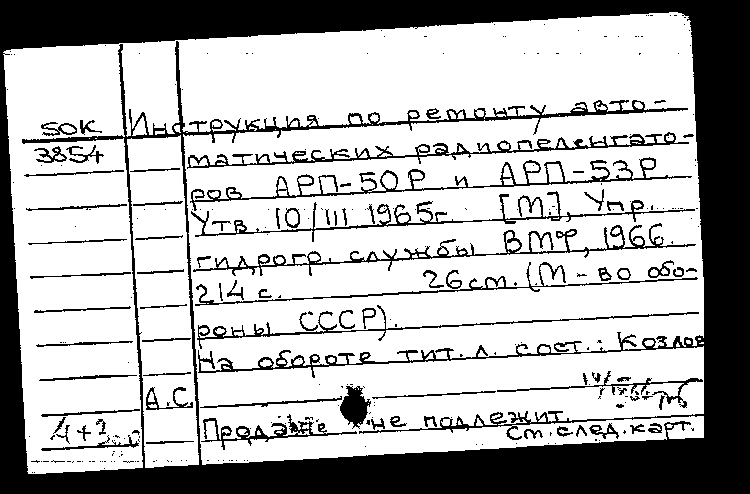 50К Инструкция по ремонту авто-
3854 матических радиопеленгато-
ров АРП-50Р и АРП-53Р.
Утв. 10/III 1965г. [М.], Упр.
гидрогр. службы ВМФ, 1966.
214 с. 26 см. (М-во обо-
роны СССР).
На обороте тит. л. сост.: Козлов
А.С.
Продаже не подлежит.
См. след. карт.